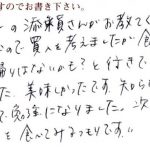 すのでお書き下さい。
ーの添乗員さんがお教てく
いので買入を考えましたが食
帰りはないかも?と付きで
た。美味しかったです。知ら
で勉強になりました。次
を食べてみるつもりです。